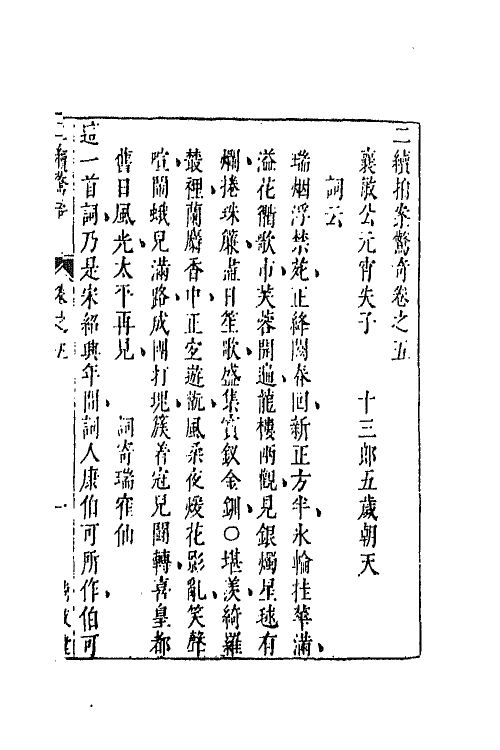 二續拍案驚奇卷之五
襄敏公元宵失子　十三郎五歲朝天
詞云
瑞烟浮禁苑正絳闕春回新正方半氷輪桂華滿
溢花衢歌市芙蓉開遍龍樓兩觀見銀燭星毬有
爛捲珠簾盡日笙歌盛集寶釵金釧〇堪羨綺羅
叢裡蘭麝香中正宜遊翫風柔夜煖花影亂笑聲
喧鬧蛾兒滿路成團打塊簇着冠兒鬭轉喜皇都
舊日風光太平再見　詞寄瑞鶴仙
這一首詞乃是宋紹興年間詞人康伯可所作伯可
二續驚奇
卷之五
一
尚友堂